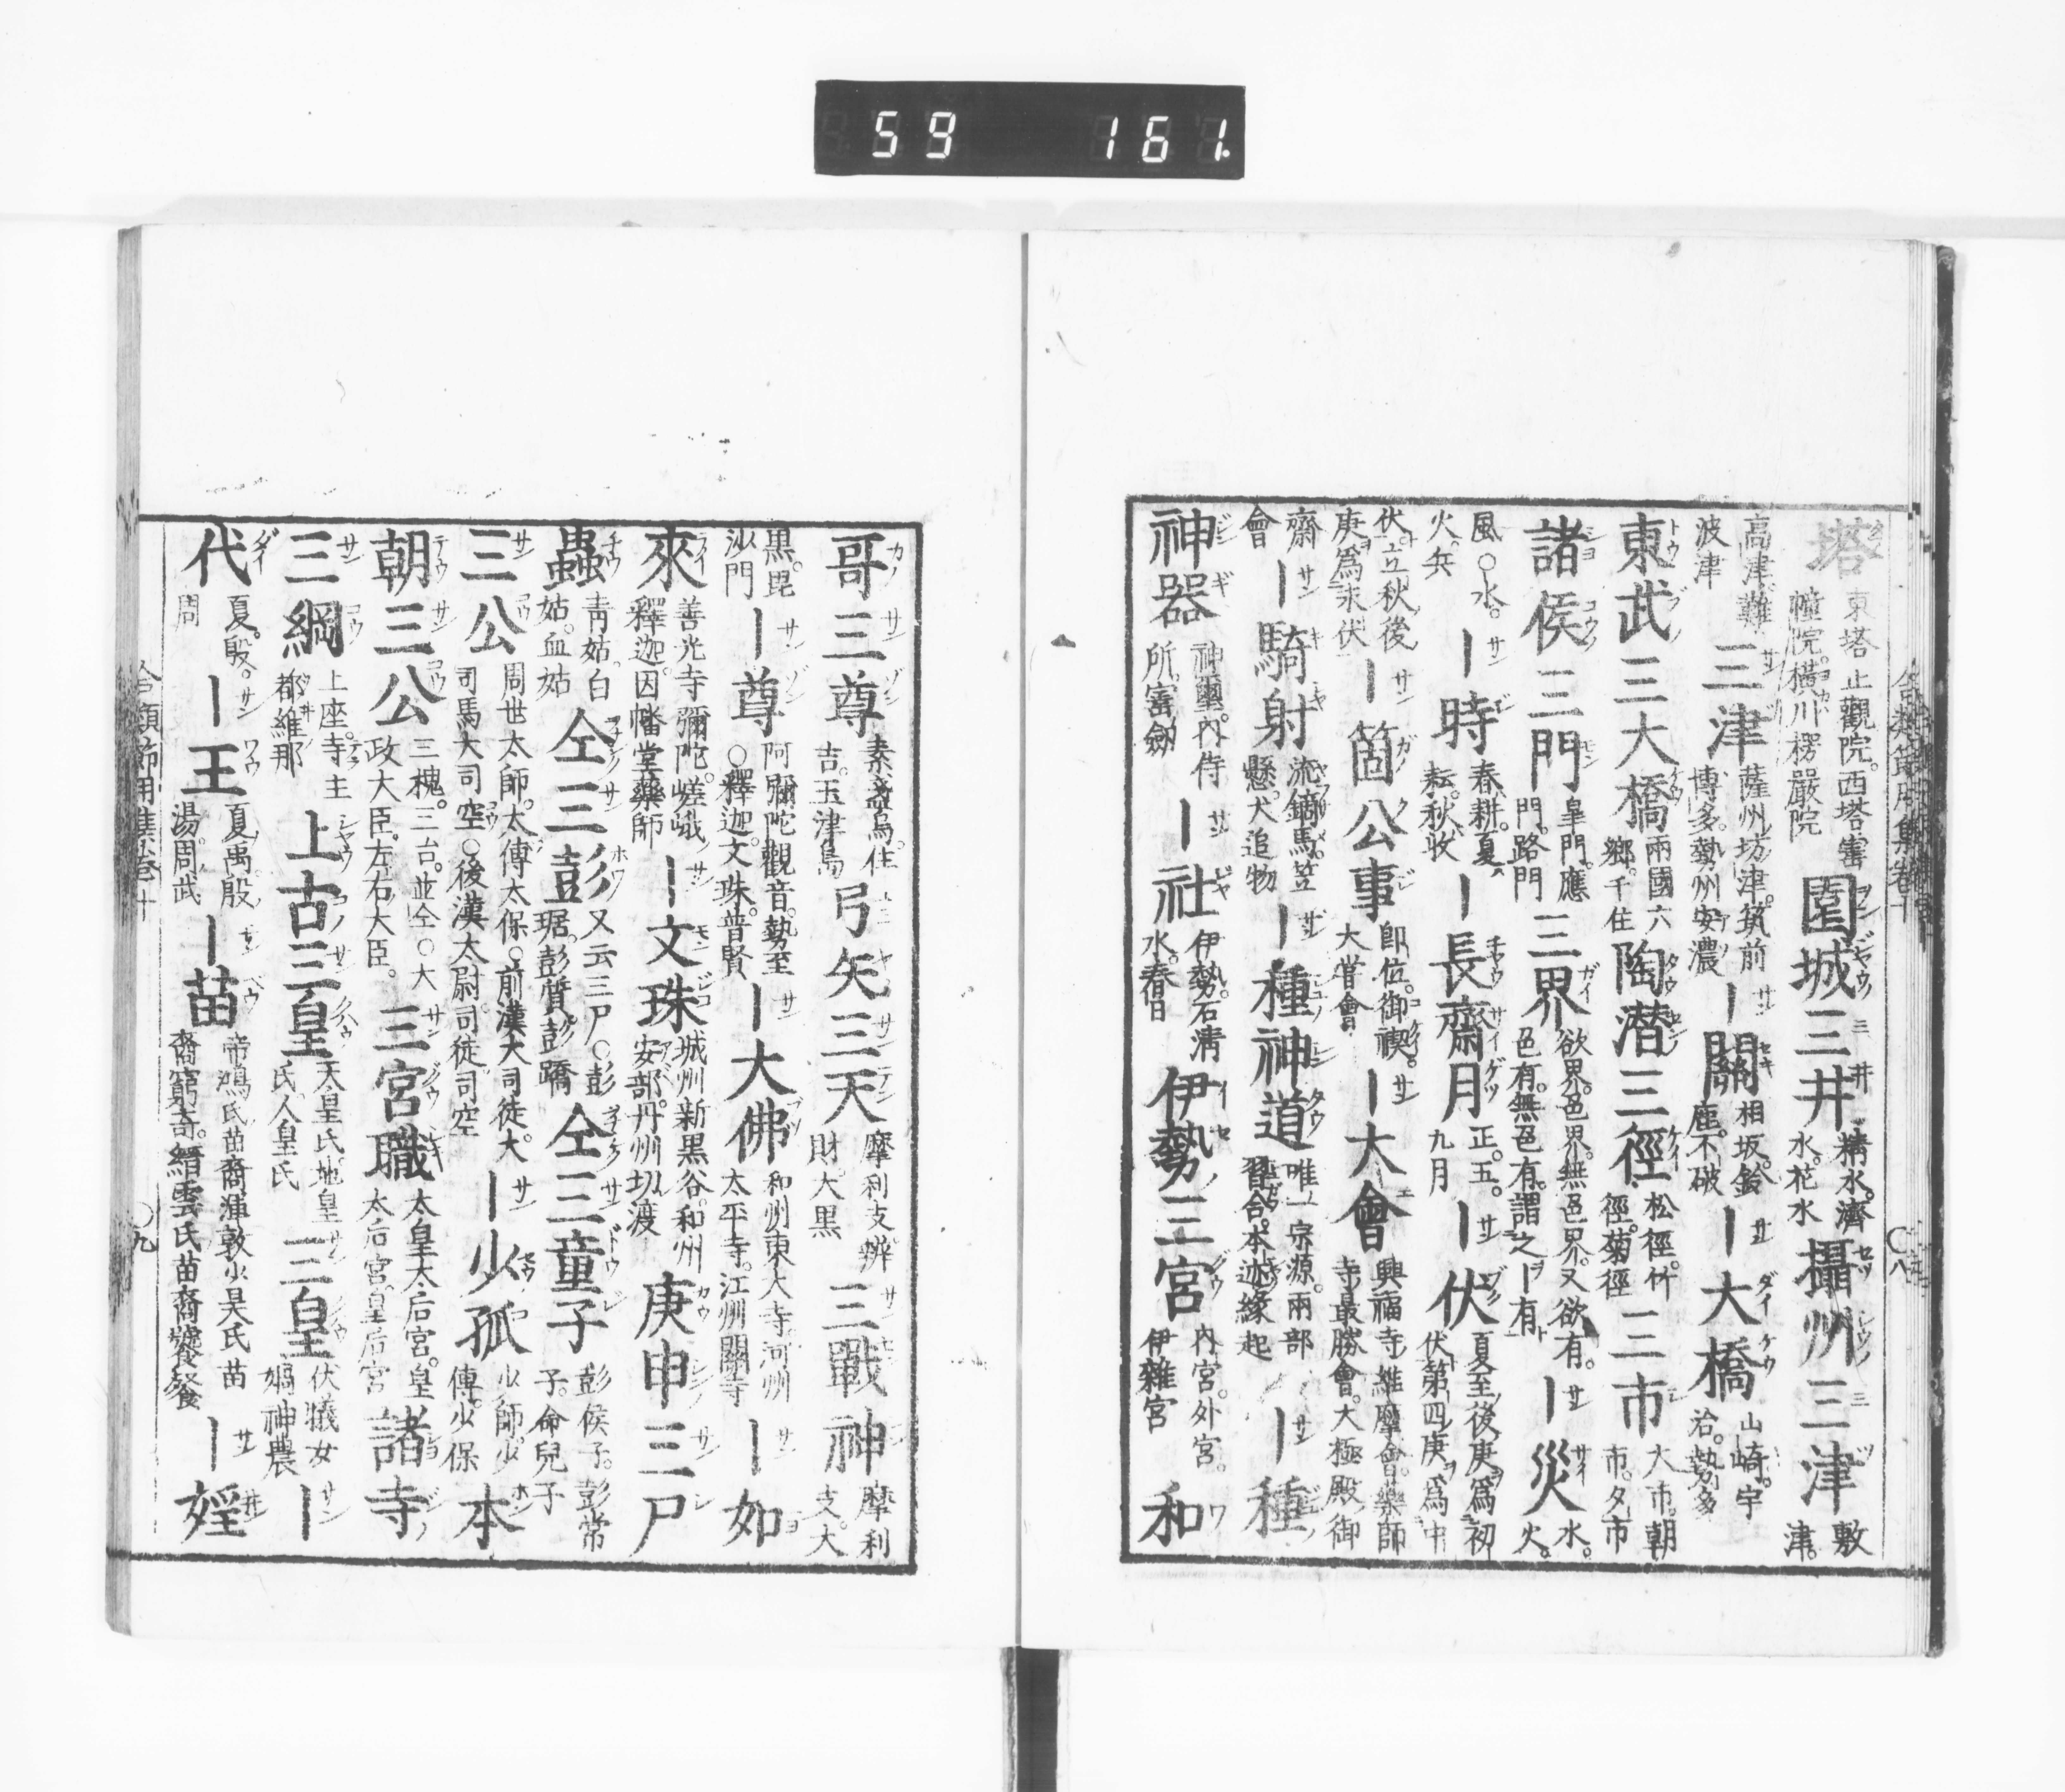 59 161
塔 東塔止觀院。西塔寳幢院。橫川楞嚴院 園城三井 精水。濟水。花水 攝州三津 敷津。
高津。難波津 三津 薩州坊津。筑前博多。勢州安濃 ｜關 相坂。鈴鹿。不破 ｜大橋 山崎。宇治。勢多
東武三大橋 兩國六鄉。千住 陶潜三徑 松徑。竹徑。菊徑 三市 大市。朝市。夕市
諸侯三門 皐門。應門。路門 三界 欲界。色界。無色界。又欲有。色有。無色有。謂之｜有 ｜災 水。火。
風○水。火。兵 ｜時 春耕。夏耘。秋收 ｜長齋月 正。五。九月 ｜伏 夏至後庚爲初伏。第四庚爲中
伏。立秋後庚爲末伏 ｜箇公事 卽位。御禊。大甞會 ｜大會 興福寺維摩會。藥師寺最勝會。大極殿御
齋會 ｜騎射 流鏑馬。笠懸。犬追物 ｜種神道 唯一宗源。兩部習合。本迹緣起 ｜種
神器 神璽。內侍所。寳劔 ｜社 伊勢。石淸水。春日 伊勢三宮 內宮。外宮。伊雜宮 和
合類節用集卷十 ○八
哥三尊 素盞烏。住吉。玉津島 弓矢三天 摩利支。辨財。大黒 三戰神 摩利支。大
黒。毘沙門 ｜尊 阿彌陀。觀音。勢至○釋迦。文珠。普賢 ｜大佛 和州東大寺。河州太平寺。江州關寺 ｜如
來 善光寺彌陀。嵯峨釋迦。因幡堂藥師 ｜文珠 城州新黒谷。和州安部。丹州切渡 庚申三尸
蟲 靑姑。白姑。血姑 仝三彭 又云三尸○彭琚。彭質。彭蹻 仝三童子 彭侯子。彭常子。命兒子
三公 周世太師。太傅。太保○前漢大司徒。大司馬。大司空○後漢太尉。司徒。司空 ｜少孤 少師。少傅。少保 本
朝三公 三槐。三台。並仝○大政大臣。左右大臣。 三宮職 太皇太后宮。皇太后宮。皇后宮 諸寺
三綱 上座。寺主都維那 上古三皇 天皇氏。地皇氏。人皇氏 三皇 伏犧。女媧。神農 ｜
代 夏。殷。周 ｜王 夏禹。殷湯。周武 ｜苗 帝鴻氏苗裔渾敦。少昊氏苗裔窮奇。縉雲氏苗裔饕餮 ｜婬
合類節用集卷十 ○九